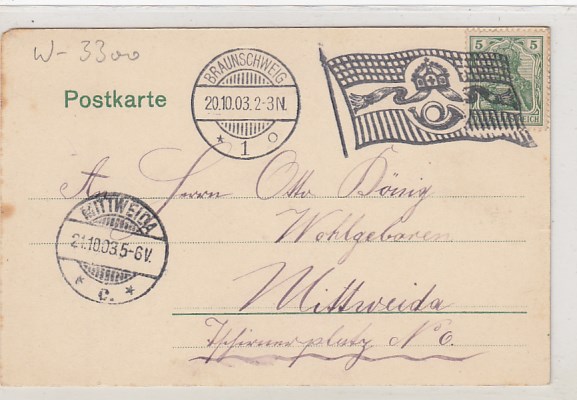 W-3300
BRAUNSCHWEIG
20.10.03.2-3N.
* 1 o
5 5
REICH
Postkarte
An Herrn Otto König
Wohlgeboren
Mittweida
Tschirnerplatz No 6.
MITTWEIDA
21.10.03.5-6V.
* c. *